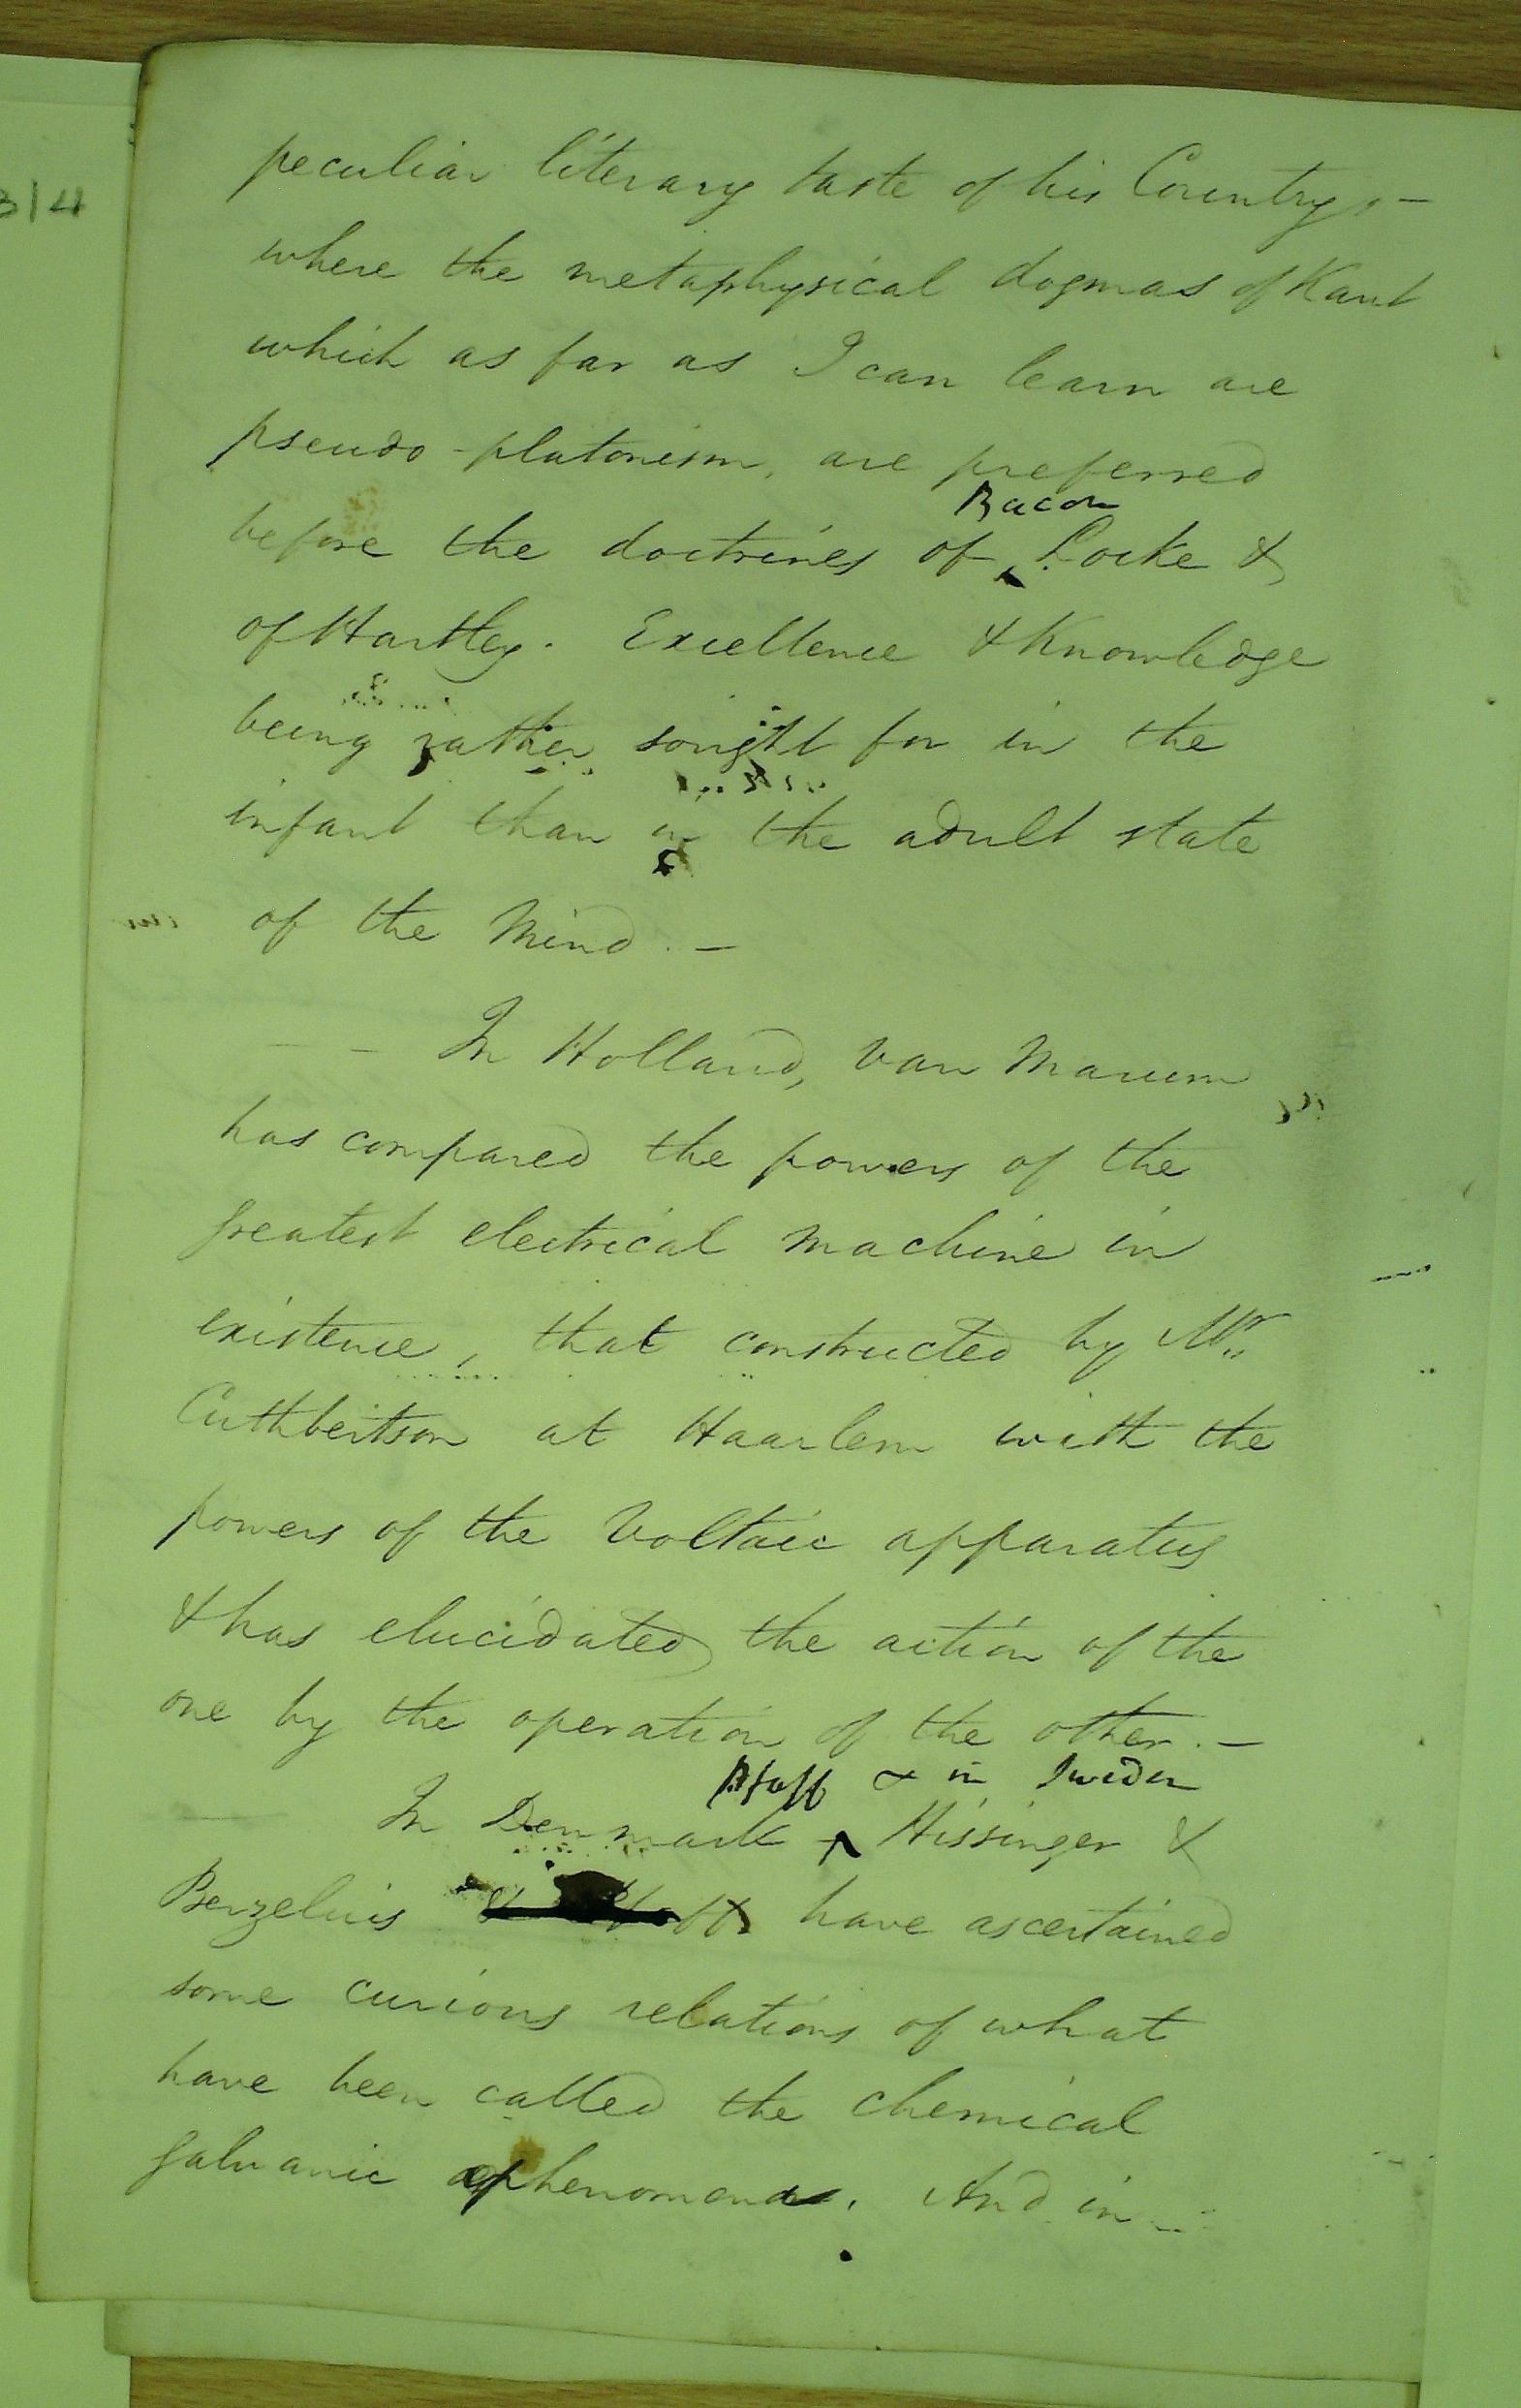 3/4
peculiar literary taste of his Country, -
where the metaphysical dogmas of Kant
which as far as I can learn are
pseudo-platonism, are preferred
Bacon
before the doctrines of Locke &
of Hartley. Excellence & Knowledge
being rather sought for in the
infant than in the adult state
of the Mind. -
- - In Holland, Van Marum
has compared the powers of the
greatest electrical machine in
existence, that constructed by Mr.
Cuthbertson at Haarlem with the
powers of the Voltaic apparatus
& has elucidated the action of the
one by the operation of the other. -
Pfaff & in Sweden
In Denmark Hissinger &
Berzelius have ascertained
some curious relations of what
have been called the chemical
galvanic phenomena. And in